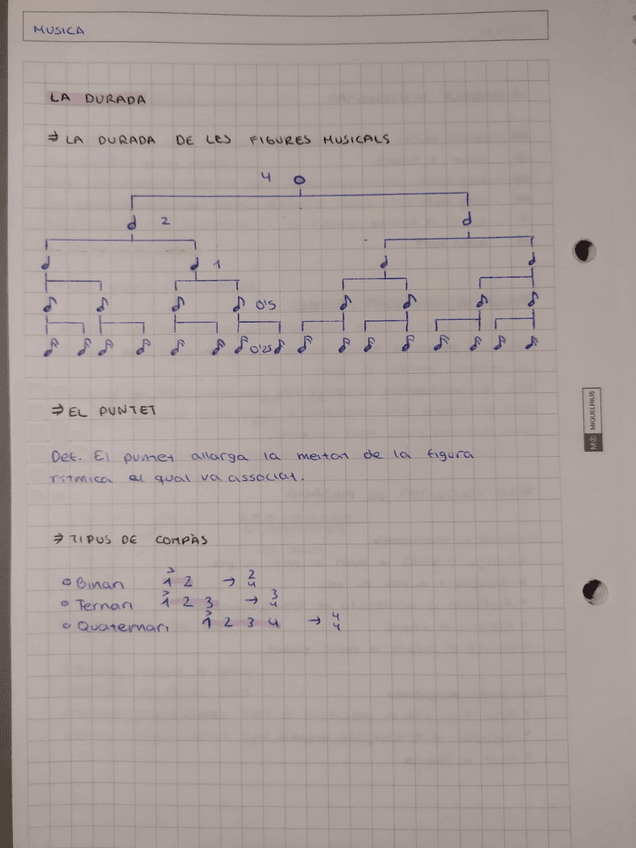 MUSICA
LA DURADA
⇒ LA DURADA DE LES FIGURES MUSICALS
4
2
1
0'5
0'25
⇒ EL PUNTET
Def. El puntet allarga la meitat de la figura
rítmica al qual va associat.
⇒ TIPUS DE COMPÀS
Binari 1 2 → 2/4
Ternari 1 2 3 → 3/4
Quaternari 1 2 3 4 → 4/4
MIQUELRIUS